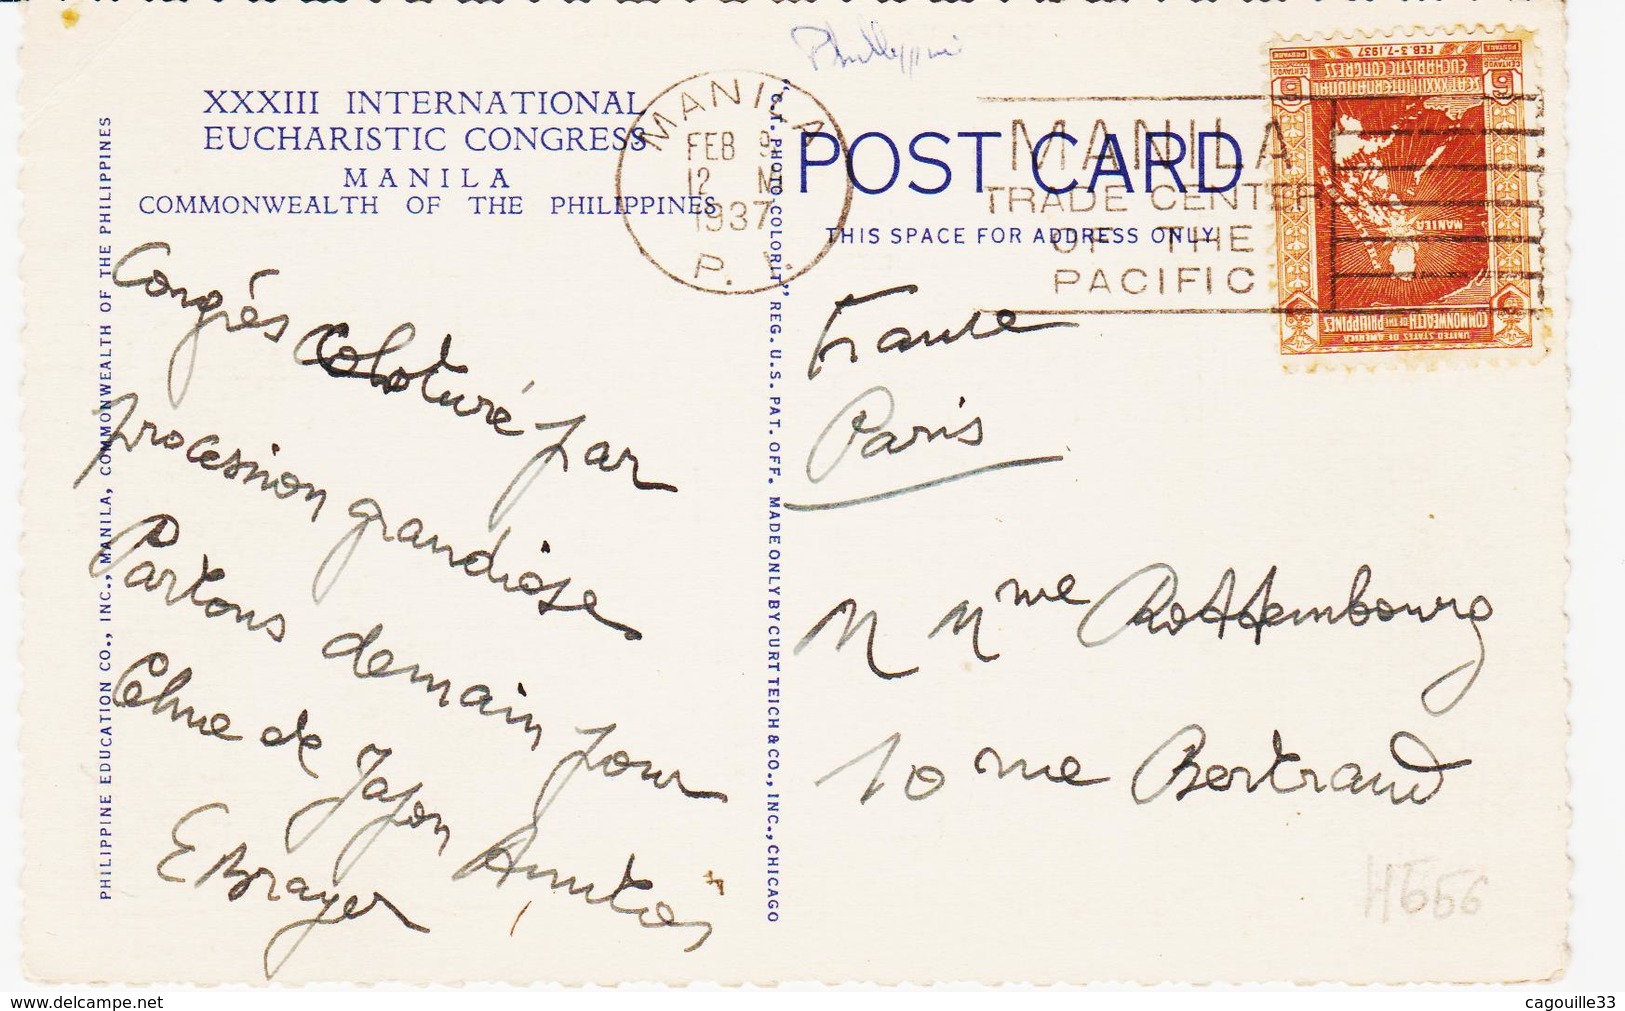 Philippine
XXXIII INTERNATIONAL
EUCHARISTIC CONGRESS
MANILA
COMMONWEALTH OF THE PHILIPPINES
PHILIPPINE EDUCATION CO., INC., MANILA, COMMONWEALTH OF THE PHILIPPINES
Congrès cloturé par
procession grandiose
Partons demain pour
Chine de Japon Amitiés
EBrayer
MANILA
FEB 9
12 M
1937
P. I.
"C.T. PHOTO-COLORIT" REG. U.S. PAT. OFF. MADE ONLY BY CURT TEICH & CO., INC., CHICAGO
POST CARD
THIS SPACE FOR ADDRESS ONLY
MANILA
TRADE CENTER
OF THE
PACIFIC
UNITED STATES OF AMERICA
COMMONWEALTH OF THE PHILIPPINES
MANILA
6 6
SCAT XXXIII INTERNATIONAL
EUCHARISTIC CONGRESS
FEB. 3-7, 1937
CENTAVOS CENTAVOS
POSTAGE POSTAGE
France
Paris
M Mme Rottembourg
10 rue Bertrand
H656
www.delcampe.net
cagouille33